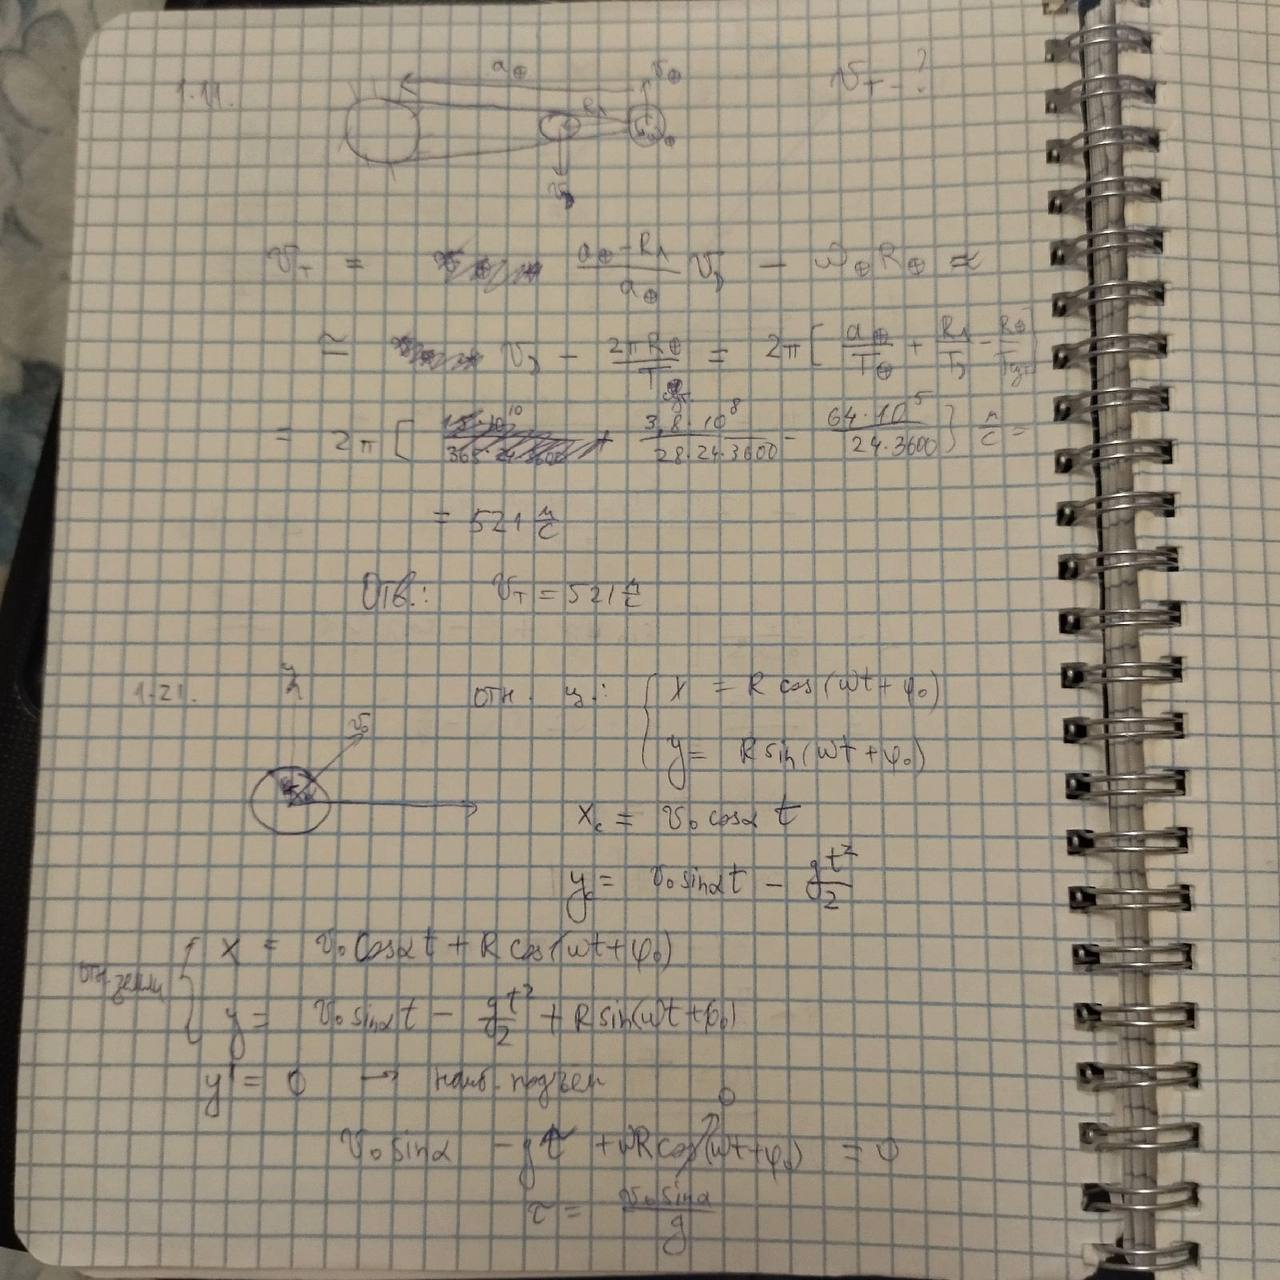 1.11.
a⊕ v⊕ R_Л v_Т - ?
v_Т = (a⊕ - R_Л)/a⊕ v_Л - ω⊕R⊕ ≈
≅ v_Л - 2πR⊕/T = 2π[a⊕/T⊕ + R_Л/T_Л - R⊕/T
= 2π[ 3,8·10⁸/(28·24·3600) - 64·10⁵/(24·3600)] м/с =
= 521 м/с
Отв.: v_Т = 521 м/с
1.21. y отн. ц.: { x = R cos(ωt + φ₀)
v₀ y = R sin(ωt + φ₀)
x_c = v₀ cosα t
y_c = v₀ sinα t - gt²/2
отн. земли { x = v₀ cosα t + R cos(ωt + φ₀)
y = v₀ sinα t - gt²/2 + R sin(ωt + φ₀)
y' = 0 → наиб. подъем
v₀ sinα - gτ + ωR cos(ωτ + φ₀) = 0
τ = v₀ sinα/g